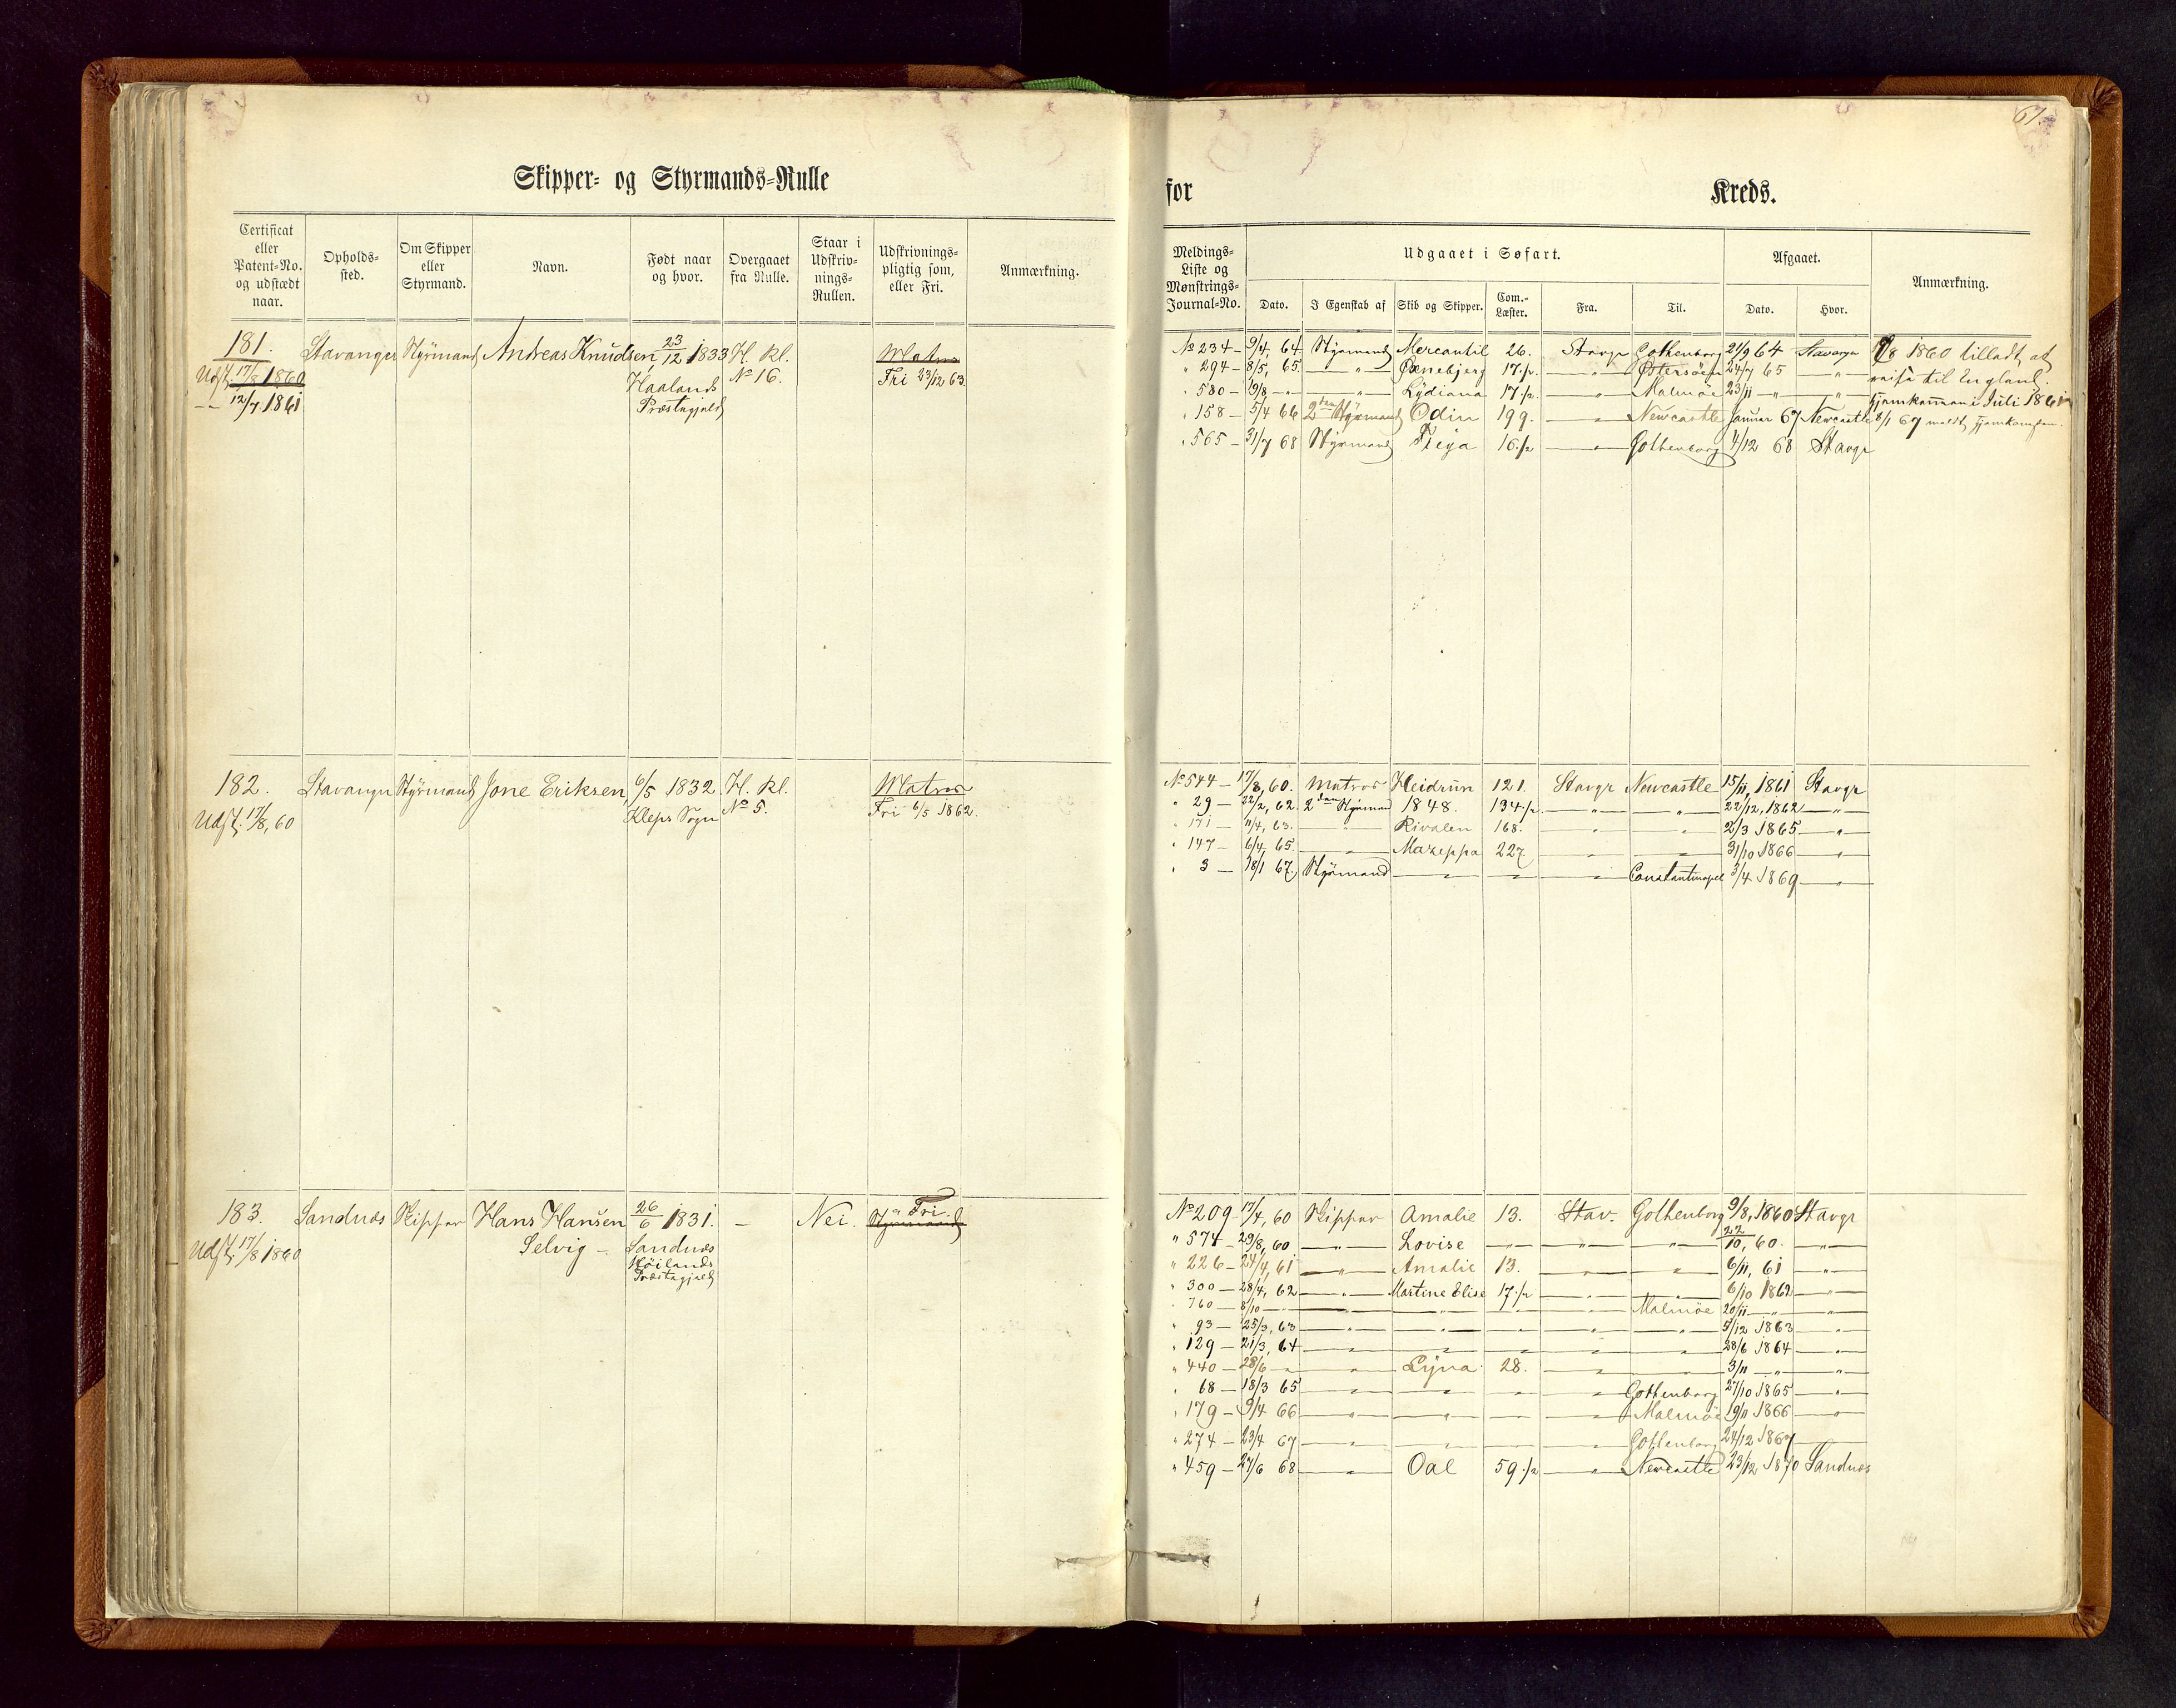 67.
Skipper- og Styrmands-Rulle
for
Kreds.
Certificat eller Patent-No. og udstædt naar.
Opholds-sted.
Om Skipper eller Styrmand.
Navn.
Født naar og hvor.
Overgaaet fra Rulle.
Staar i Udskriv-nings-Rullen.
Udskrivnings-pligtig som, eller Fri.
Anmærkning.
Meldings-Liste og Mønstrings-Journal-No.
Udgaaet i Søfart.
Dato.
I Egenskab af
Skib og Skipper.
Com.-Læster.
Fra.
Til.
Afgaaet.
Dato.
Hvor.
Anmærkning.
181. Stavanger Styrmand Andreas Knudsen, 23/12 1833 H. Kl. Matros
Udst. 17/8 1860 Haalands No 16. Fri 23/12 63.
— " — 12/7 1861 Præstegjeld
No 234 — 9/4, 64. Styrmand Mercantil 26. Stavgr Gothenborg 21/9 64 Stavanger 1860 tilladt at
" 294 — 8/5, 65. — " — 17 1/2. — " — Østersøen 24/7 65 — " — reise til England.
" 580 — 19/8 — " — — " — Lydiana 17 1/2. — " — Malmöe 23/11 — " — — " — hjemkommen i Juli 1861
" 158 — 5/4 66 2den Styrmand Odin 199. — " — Newcastle Januar 67 Newcastle 8/1 67 meldt hjemkommen.
" 565 — 31/7 68 Styrmand Freya 16 1/2 — " — Gothenborg 4/12 68 Stavgr
182. Stavanger Styrmand Jone Eriksen, 6/5 1832 H. Kl. Matros
Udst. 17/8, 60 Kleps Sogn No 5. Fri 6/5 1862.
No 544 — 17/8, 60. Matros Heidrun 121. Stavgr Newcastle 15/11, 1861 Stavgr
" 29 — 22/2, 62. 2den Styrmand 1848. 134 1/2 — " — — " — 22/12, 1862 — " —
" 171 — 11/4, 63. — " — Rivalen 168. — " — — " — 2/3 1865 — " —
" 147 — 6/4, 65. — " — Mazeppa 227. — " — — " — 31/10 1866 — " —
" 3 — 18/1 67. Styrmand — " — — " — — " — Constantinopel 3/4 1869 — " —
183. Sandnæs Skipper Hans Hansen 26/6 1831. — Nei. Fri.
Udst. 17/8 1860 Selvig — Sandnæs Styrmand
Höilands
Præstegjeld
No 209 — 17/4, 60 Skipper Amalie 13. Stav. Gothenborg 9/8, 1860 Stavgr
" 574 — 29/8, 60 — " — Lovise — " — — " — — " — 22/10, 60. — " —
" 226 — 24/4, 61 — " — Amalie 13. — " — — " — 6/11, 61 — " —
" 300 — 28/4, 62 — " — Martine Elise 17 1/2 — " — — " — 6/10 1862 — " —
" 760 — 8/10 — " — — " — — " — — " — — " — Malmöe 20/11 — " — — " —
" 93 — 25/3, 63 — " — — " — — " — — " — — " — 5/12 1863 — " —
" 129 — 21/3, 64 — " — — " — — " — — " — — " — 28/6 1864 — " —
" 440 — 28/6 — " — — " — Lyna 28. — " — — " — 3/11 — " — — " —
" 68 — 18/3 65 — " — — " — — " — — " — Gothenborg 27/10 1865 — " —
" 179 — 9/4 66 — " — — " — — " — — " — Malmöe 19/11 1866 — " —
" 274 — 23/4 67 — " — — " — — " — — " — Gothenborg 24/12 1867 — " —
" 459 — 27/6 68 — " — Oal 59 1/2 — " — Newcastle 23/12 1870 Sandnæs